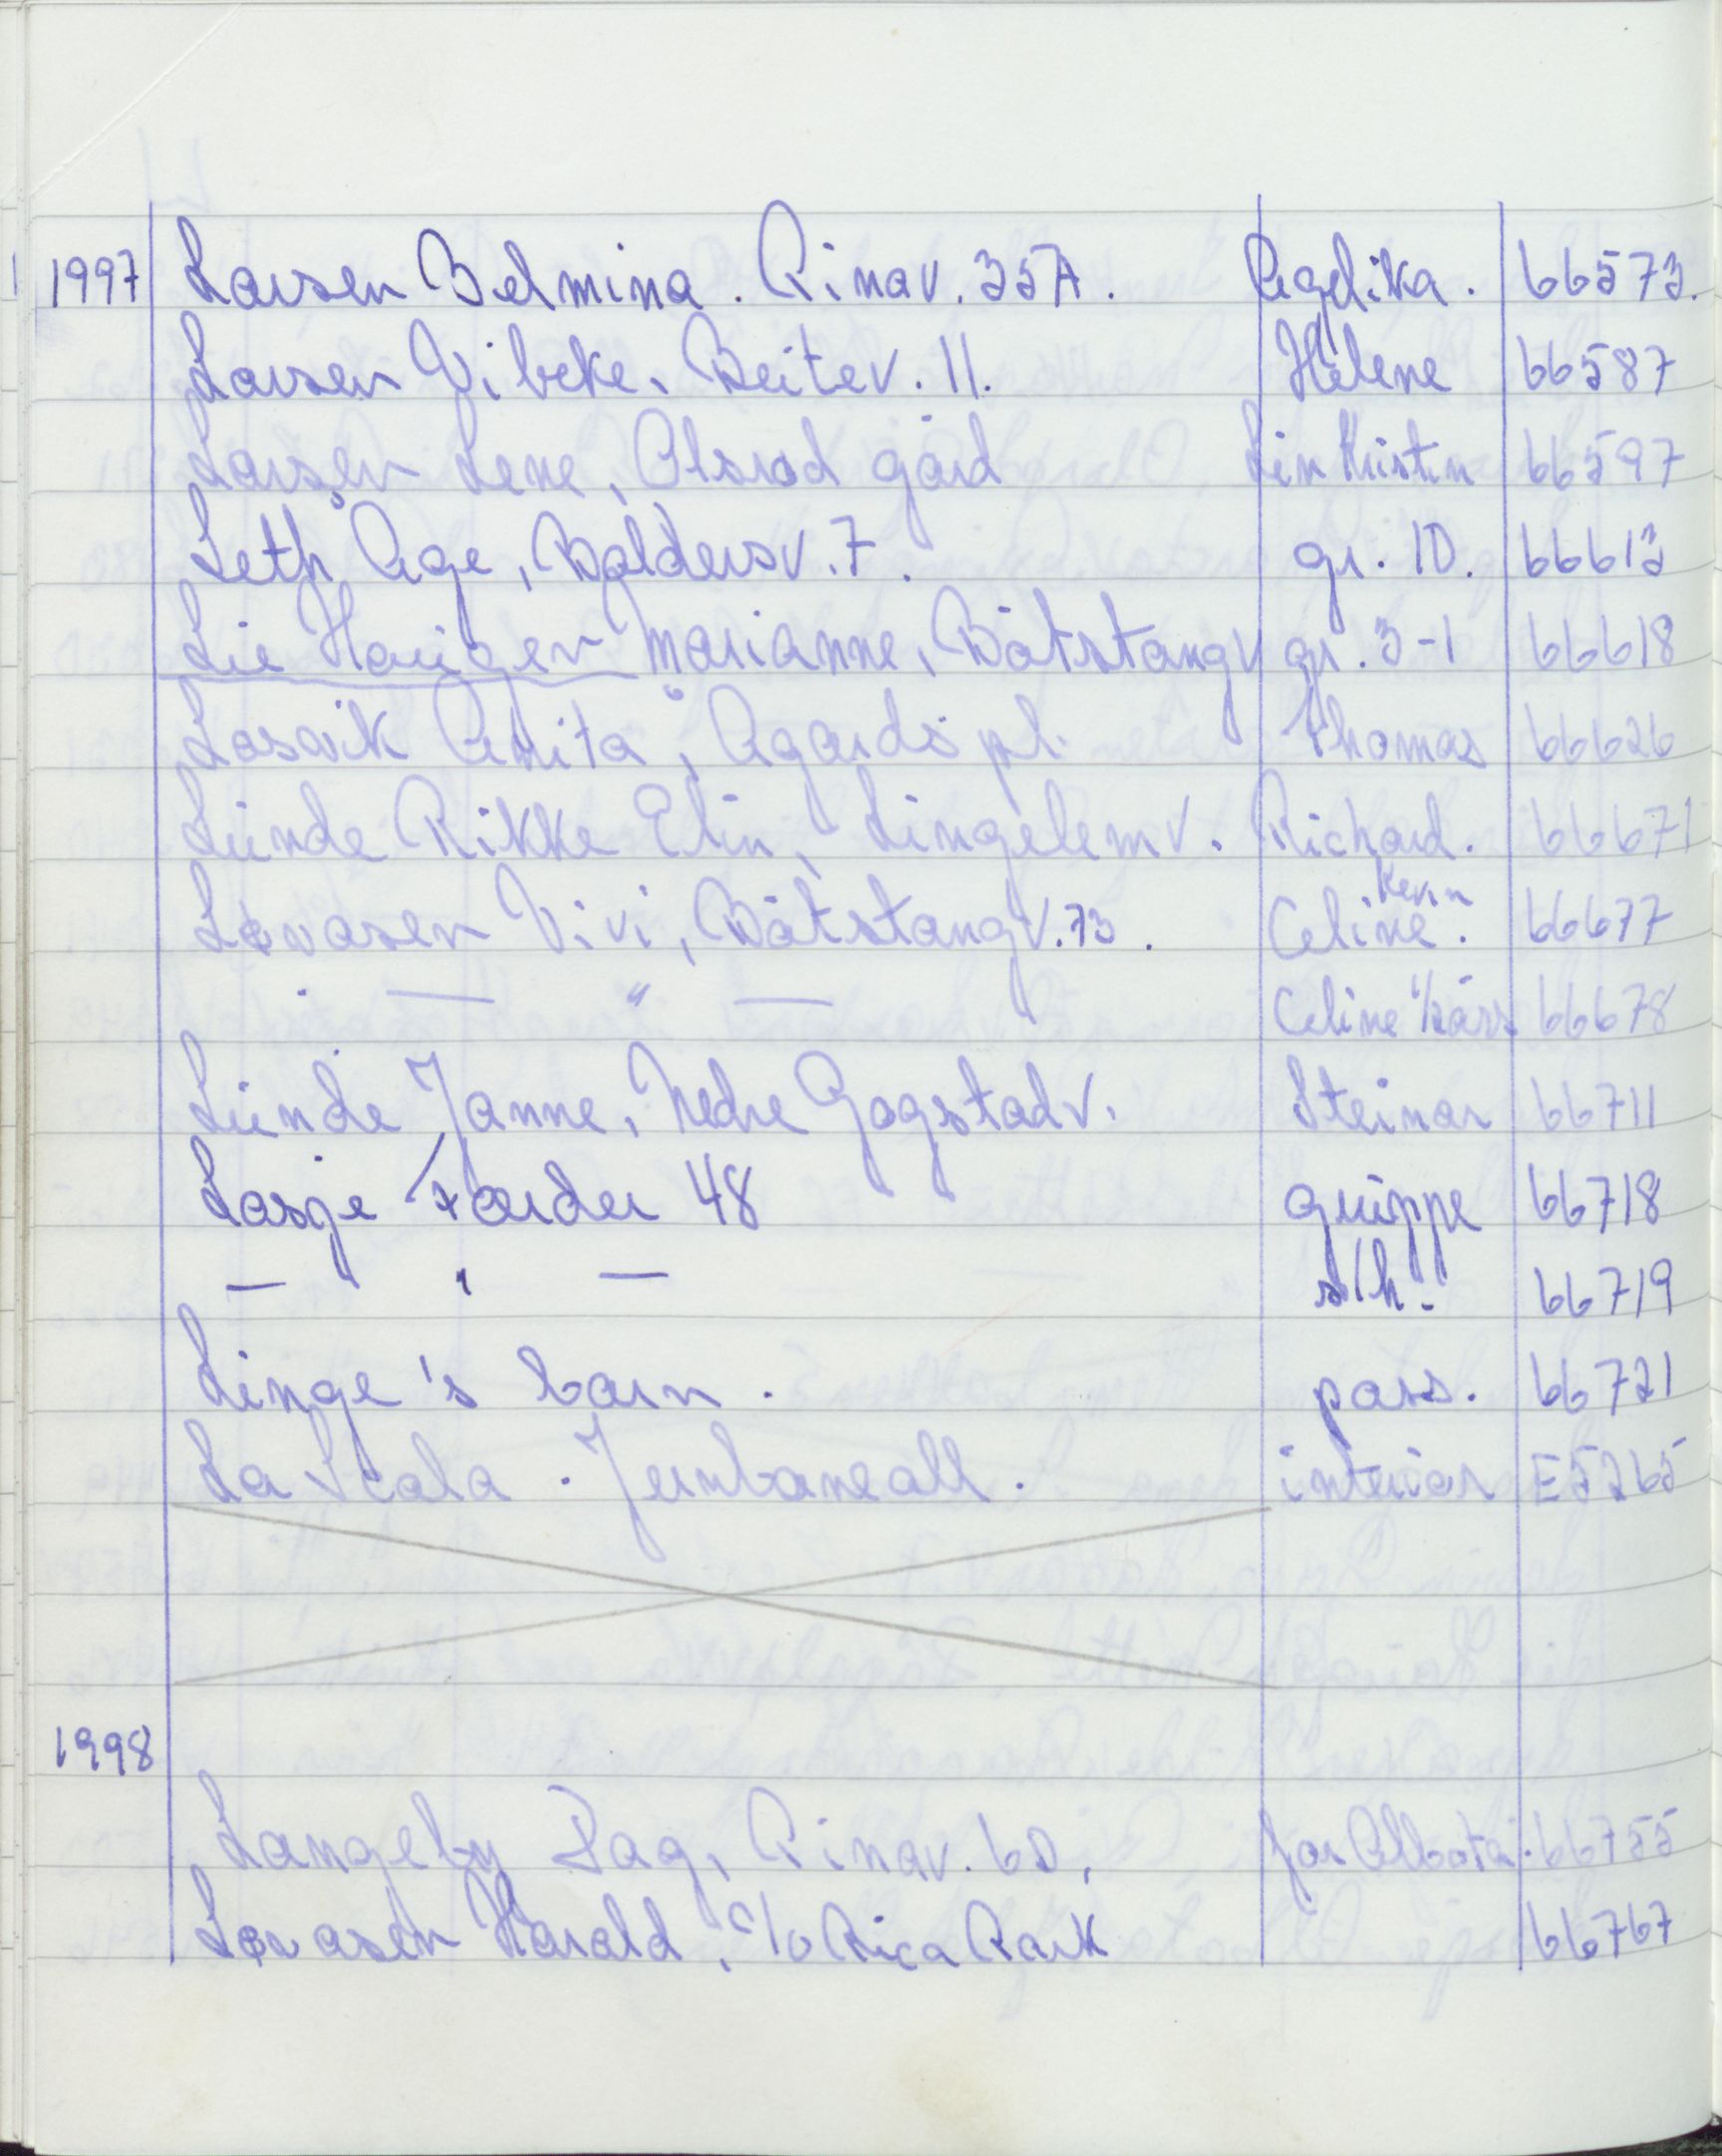 1997 Larsen Belmina. Rinav. 35A. Agelika. 66573.
Larsen Vibeke, Beitev. 11. Helene 66587
Larsen Lene, Olsrød gård Lin Kristin 66597
Leth Åge, Baldersv. 7. gr. 10. 66613
Lie Haugen Marianne, Båtstangv gr. 3-1 66618
Løsvik Anita, Ågards pl. Thomas 66626
Lunde Rikke Elin, Lingelemv. Richard. 66671
Løvåsen Vivi, Båtstangv. 73. Celine. Kevin 66677
— " — Celine 66678
Lunde Janne, Nedre Gogstadv. Steinar 66711
Losje Færder 48 gruppe 66718
— " — s/h. 66719
Linge's barn. pass. 66721
La Scala. Jernbaneall. interiør E5265
1998
Langeby Dag, Rinav. 60, 66755
Løvåsen Harald, c/o Rica Park 66767